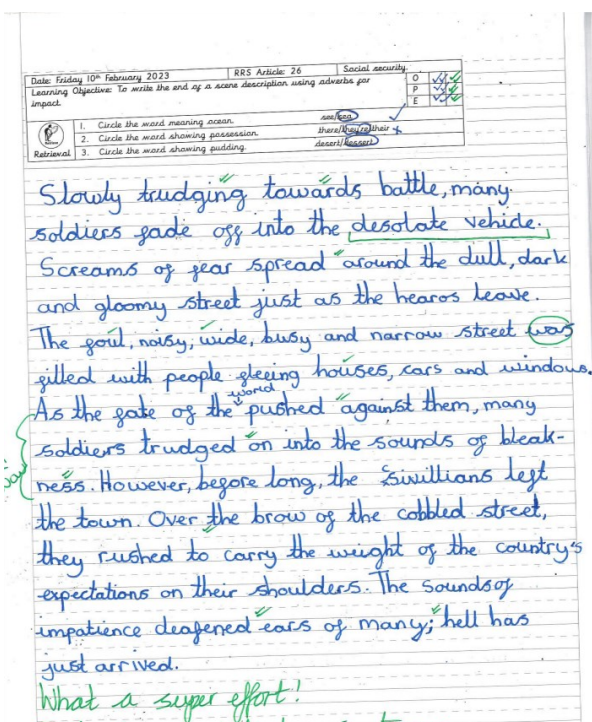 Date: Friday 10th February 2023 RRS Article: 26 Social security.
Learning Objective: To write the end of a scene description using adverbs for impact.
O
P
E
Retrieval
1. Circle the word meaning ocean. see/sea
2. Circle the word showing possession. there/they're/their
3. Circle the word showing pudding. desert/dessert
Slowly trudging towards battle, many
soldiers fade off into the desolate vehicle.
Screams of fear spread around the dull, dark
and gloomy street just as the hearos leave.
The foul, noisy, wide, busy and narrow street was
filled with people fleeing houses, cars and windows.
world
As the fate of the pushed against them, many
soldiers trudged on into the sounds of bleak-
ness. However, before long, the sivillians left
the town. Over the brow of the cobbled street,
they rushed to carry the weight of the country's
expectations on their shoulders. The sounds of
impatience deafened ears of many; hell has
just arrived.
What a super effort!